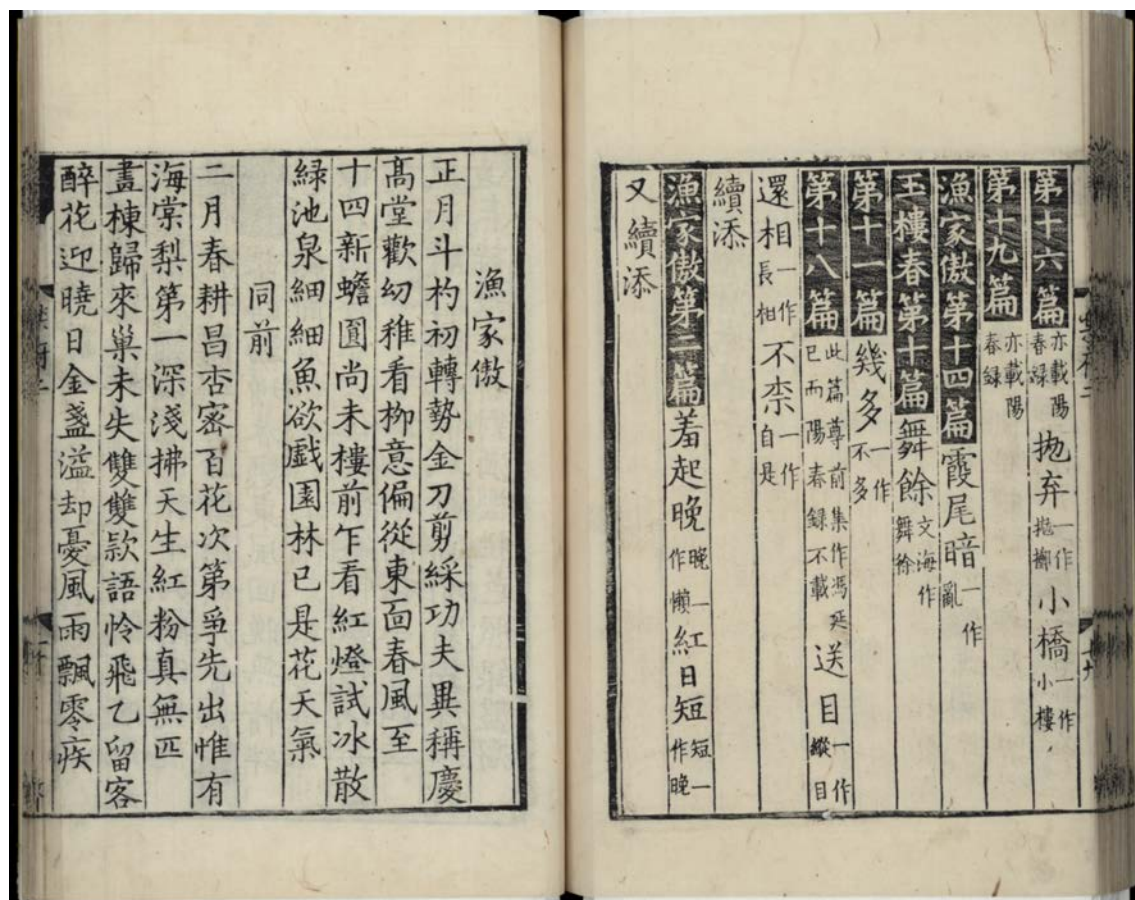 第十六篇亦載陽春録抛弃一作抛擲小橋一作小樓
第十九篇亦載陽春録
漁家傲第十四篇霞尾暗一作亂
玉樓春第十篇舞餘文海作舞徐
第十一篇幾多一作不多
第十八篇此篇尊前集作馮延已而陽春録不載送目一作縱目
還相一作長相不柰一作自是
續添
漁家傲第二篇羞起晚晚一作懶紅日短短一作晚
又續添
漁家傲
正月斗杓初轉勢金刀剪綵功夫異稱慶
髙堂歡幼稚看栁意偏從東面春風至
十四新蟾圓尚未樓前乍看紅燈試冰散
緑池泉細細魚欲戲園林已是花天氣
同前
二月春耕昌杏密百花次第爭先出惟有
海棠梨第一深淺拂天生紅粉真無匹
畫棟歸來巢未失雙雙款語怜飛乙留客
醉花迎曉日金盞溢却憂風雨飄零疾